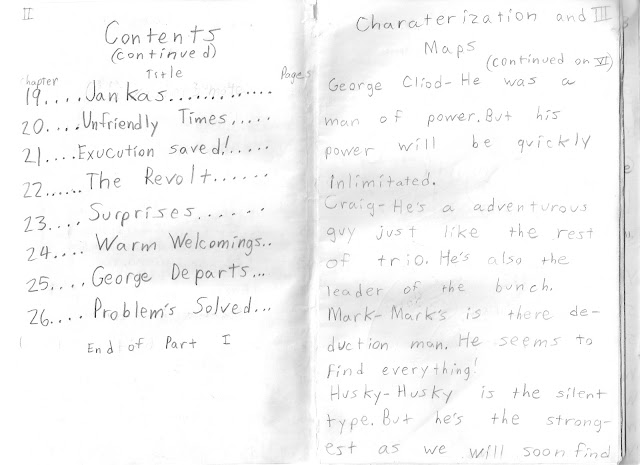 II
Contents
(continued)
Chapter Title Pages
19....Jankas.............
20....Unfriendly Times.....
21....Exucution saved!.....
22......The Revolt......
23....Surprises.......
24....Warm Welcomings..
25....George Departs...
26....Problem's Solved...
End of Part I
Charaterization and III
Maps
(continued on VI)
George Cliod-He was a
man of power. But his
power will be quickly
inlimitated.
Craig-He's a adventurous
guy just like the rest
of trio. He's also the
leader of the bunch.
Mark-Mark's is there de-
duction man. He seems to
find everything!
Husky-Husky is the silent
type. But he's the strong-
est as we will soon find